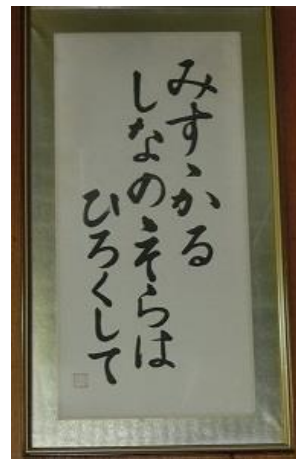 みすゝかる
しなのゝそらは
ひろくして